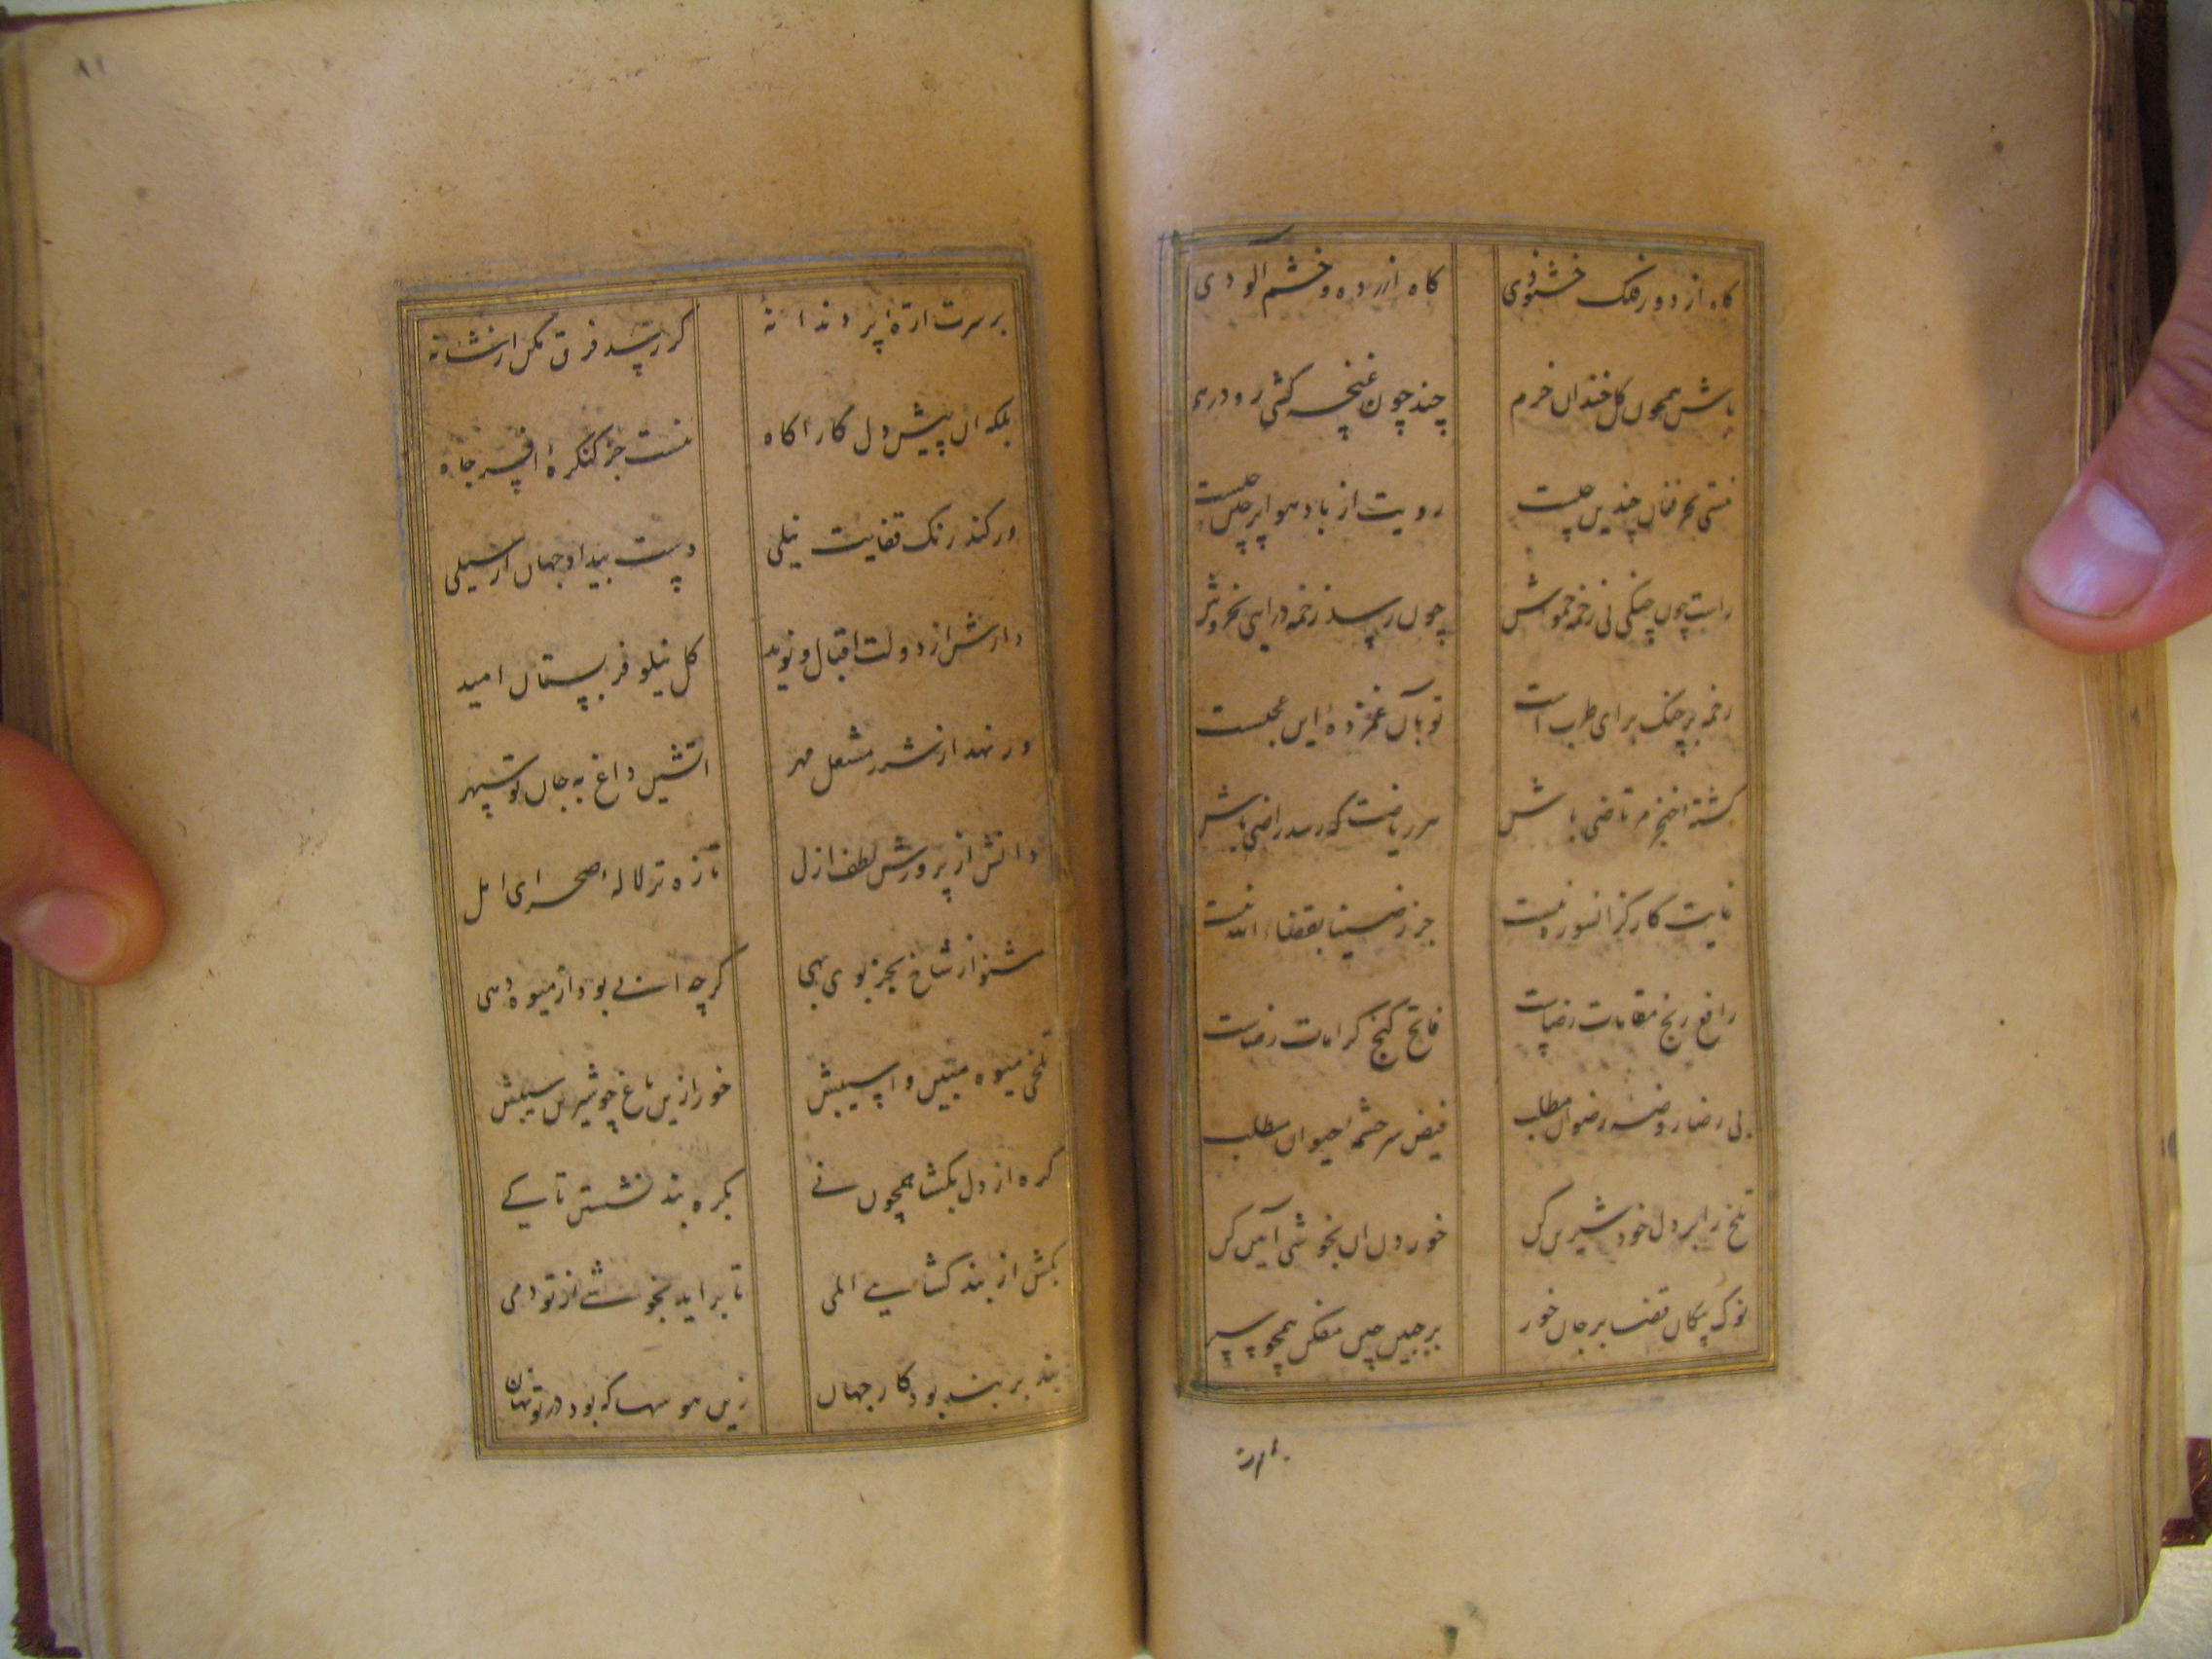 کاه از دور فلک خشنودی کاه ازرده و خشم الودی
باش همچون کل خندان خرم چند چون غنچه کشی رو درهم
نیستی بحر فغان چندین چیست رویت از باد هوا پرچین چیست
راست چون چنکی نی زخمه خموش چون رسد زخمه درایی بخروش
زخمه بر چنک برای طرب است تو بآن غمزدهٔ این عجبست
کشتهٔ خنجر مرتاضی باش هر ریاضت که رسد راضی باش
غایت کار کز انسور نیست جز رضینا بقضاء الله نیست
رافع رنج مقامات رضاست فاتح کنج کرامات رضاست
بی رضا روضهٔ رضوان مطلب فیض سرچشمهٔ حیوان مطلب
تلخ را بر دل خود شیرین کن خوردن ان بخوشی آیین کن
نوک پیکان قضا بر جان خور بر جبین چین مفکن همچو سپر
برسرت
برسرت ارهٔ پر دندانه کر رسد فرق مکن از شانه
بلکه ان پیش دل کار اکاه نیست جز کنکرهٔ افسر جاه
ور کند رنک قفایت نیلی دست بیداد جهان از سیلی
دارش از دولت اقبال و نوید کل نیلوفر بستان امید
ور نهد از شرر مشعل مهر اتشین داغ به جان تو سپهر
دانش از پرورش لطف ازل تازه تر لالهٔ صحرای امل
مشنو از شاخ بجز بوی بهی کرچه اسیبی بود از میوه دهی
تلخی میوه مبین و اسیبش خور ازین باغ چو شیرین سیبش
کره از دل بکشا همچون نے بکره بند نشستن تا کے
بکش از بند کشایے المی تا براید بخوشے از تو دمی
بند بر بند بود کار جهان زین هوسها که بود در تو نهان
٨١